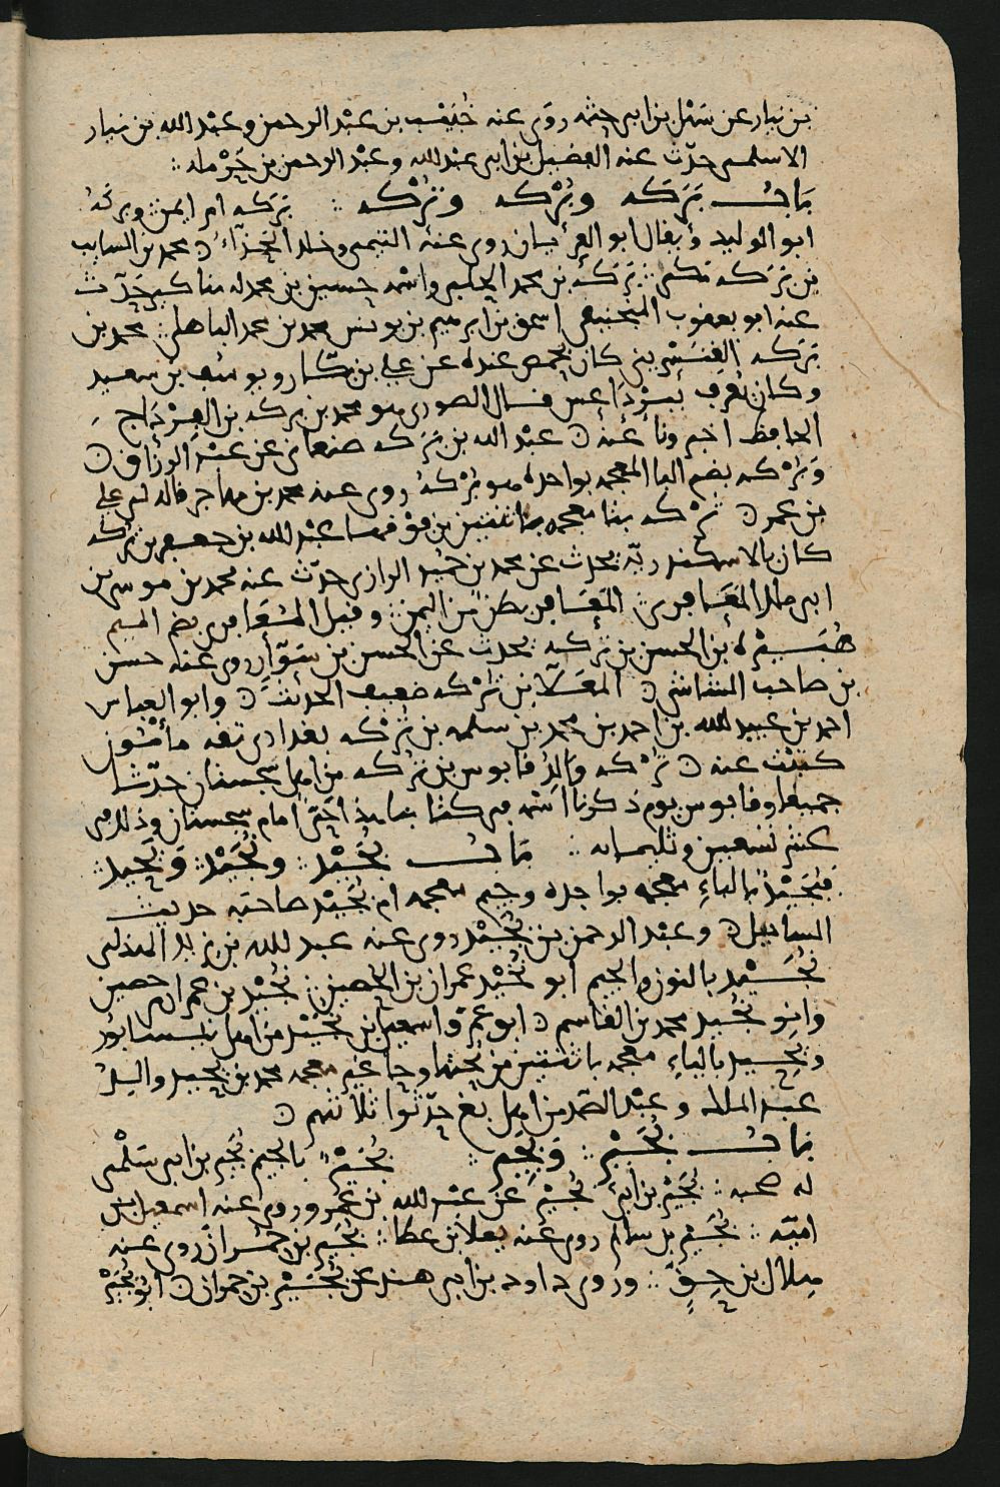 بن نيار عن سهل بن ابي حثمه روى عنه خُبَيْب بن عبد الرحمن وعبد الله بن نيار
الاسلمي حدّث عنه الفضيل بن ابي عبد الله وعبد الرحمن بن حَرْمله
بَابُ بَرَكه وبُرْكه وتُرْكه بَرَكه ام ايمن وبركَهُ
ابو الوليد ويقال ابو العريان روى عنه التيمي وخلد الحذّاء محمد بن السايب
بن بَرَكه مكي بَرَكه بن محمد الحلبي واسمه حسين بن محمد له مناكير حَدّث
عنه ابو يعقوب المنجنيقي اسحق بن ابرهيم بن يونس محمد بن محمد الباهلي محمد بن
بَرَكه القِنَّسْريني كان بحمص عنده عن علي بن بكّار ويوسف بن سعيد
وكان يُعرف ببَرْدَاعس فسال الصوري هو محمد بن بركه بن الفِرْداج
الحافظ اخبرونا عنه عبْد الله بن بَرَكه صنعاني عن عبْد الرزاق
وَبُرْكه بضم البا المعجمه بواحده هو بُرْكهُ روى عنه محمد بن مهاجر قاله لي علي
بن عمر تُرْكه بتا معجمه باثنتين من فوقها عبْد الله بن جعفر بن تُركه
كان بالاسكندريّه يُحدث عن محمد بن حُميْد الرازي حدّث عنه محمد بن موسى بن
ابي ملك المَعَافري المَعَافر بطن من اليمن وقيل المُعَافري بضم الميم
هُبَيْرة بن الحسن بن تُركه يحدث عن الحسن بن سَوّار روى عنه حسن
بن صاحب الشاشي المعَلّا بن تُرْكه ضعيف الحديث وابو العباس
احمد بن عبيد الله بن احمد بن محمد بن سلمه بن تُرْكه بغدادي ثقه مأمُون
كتبْت عنه تُرْكه والِدُ قابوس بن تُركه من اهل سجستان حدّثنا
جميعا وقابوس يوم ذكرنا اسمه في كتابنا هذا حَيّ امام سجستان وذلك في
سَنه تسعين وثلثمائه بَابُ بُجَيْد ونُجَيْد وَيَحيد
فبُجَيْدُ بالباءِ معجمه بواحده وجيم معجمه ام بُجَيْد صاحبه حديث
السائل وعبْد الرحمن بن بُجَيْد روى عنه عبد الله بن يزيد الهذلي
نُجَيْد بالنون والجيم ابو نُجَيْد عمران بن الحصين نُجَيْد بن عمران بن حصين
وابو نُجيد محمد بن القاسم ابو عمْرو اسمعيل بن نُجَيْد من اهل نيسابور
ويَحيد بالياءِ معجمه باثنتين من تحتها وحا غير معجمه محمد بن يحيد والِدُ
عبد الملك وعبْد الصَّمد من اهل بلخ حدّثوا ثلاثتهم
بَابُ بُجَيْر وَبَحِير بُجَيْر بالجيم بُجَير بن ابي سَلْمى
له صحبه بُجَيْر بن ابي بُجَيْر عن عبْد الله بن عَمرو روى عنه اسمعيل بن
اميّه بُجَير بن سالم روى عنه يعلا بن عطا بُجَير بن حمْران روى عنه
هلال بن حِقّ وروى داود بن ابي هند عن بُجَيْر بن حمران ابو بُجَيْر